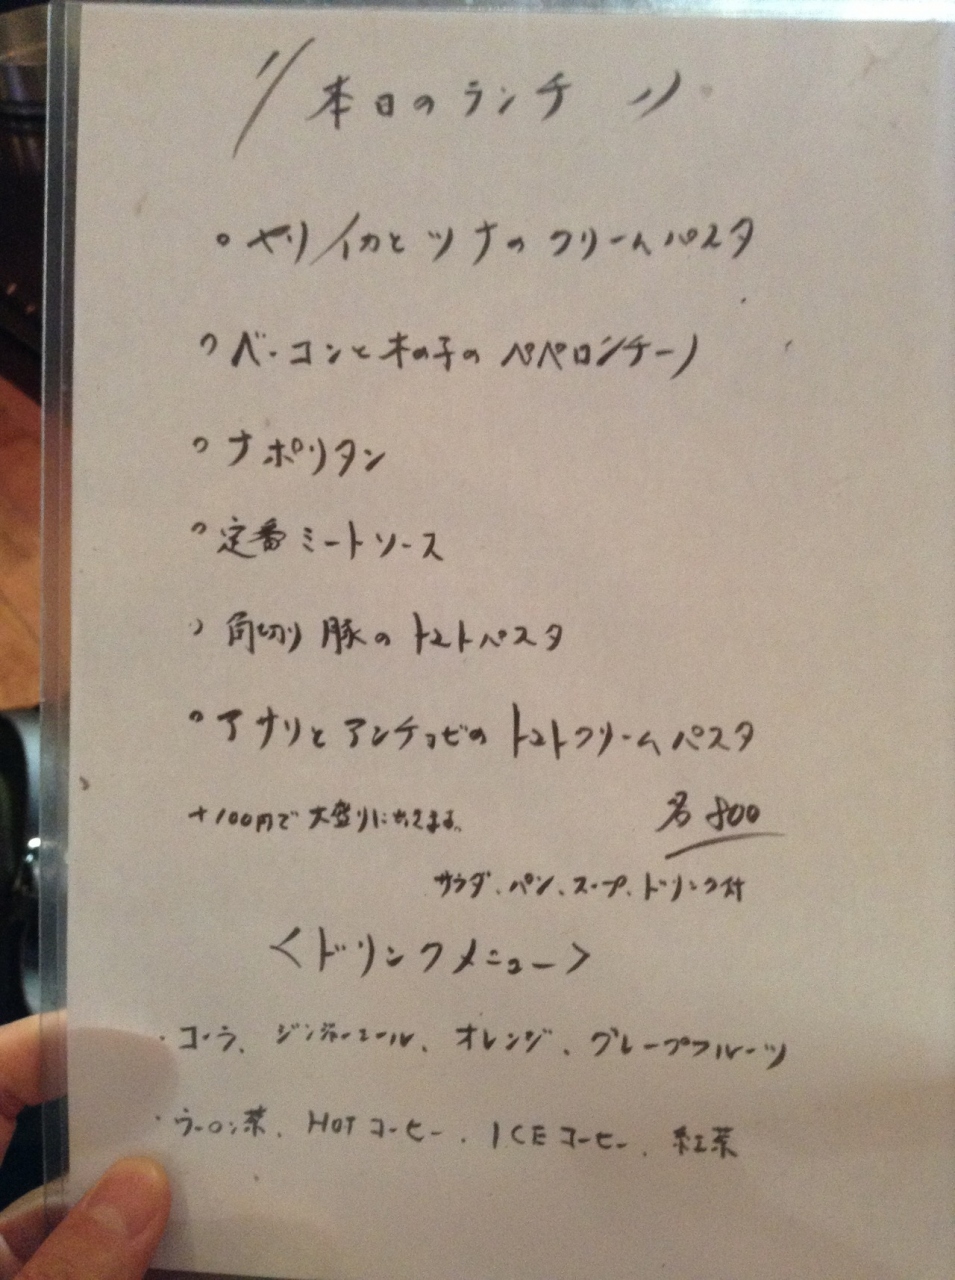 本日のランチ
○ ヤリイカとツナのクリームパスタ
○ ベーコンと木の子のペペロンチーノ
○ ナポリタン
○ 定番ミートソース
○ 角切り豚のトマトパスタ
○ アサリとアンチョビのトマトクリームパスタ
+100円で大盛りに出来ます。
各800
サラダ、パン、スープ、ドリンク付
<ドリンクメニュー>
・コーラ、ジンジャーエール、オレンジ、グレープフルーツ
・ウーロン茶、HOTコーヒー、ICEコーヒー、紅茶